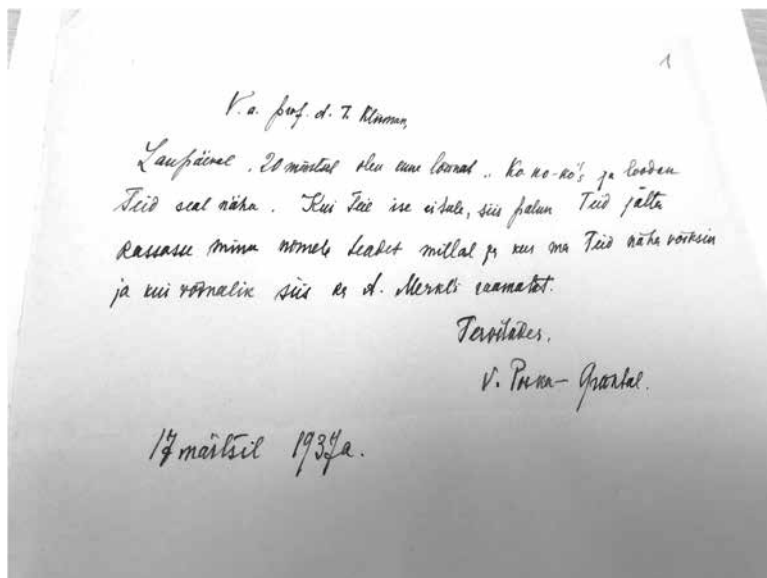 1
V. a. prof. A. T. Kliman,
Laupäeval, 20 märtsil olen enne lõunat „Ko-ko-kö's ja loodan
Teid seal näha. Kui Teie ise ei tule, siis palun Teid jätta
kassasse minu nimele teadet millal ja kus ma Teid näha võiksin
ja kui võimalik siis ka A. Merkli raamatut.
Tervitades,
V. Poska-Grünthal.
17 märtsil 1937a.